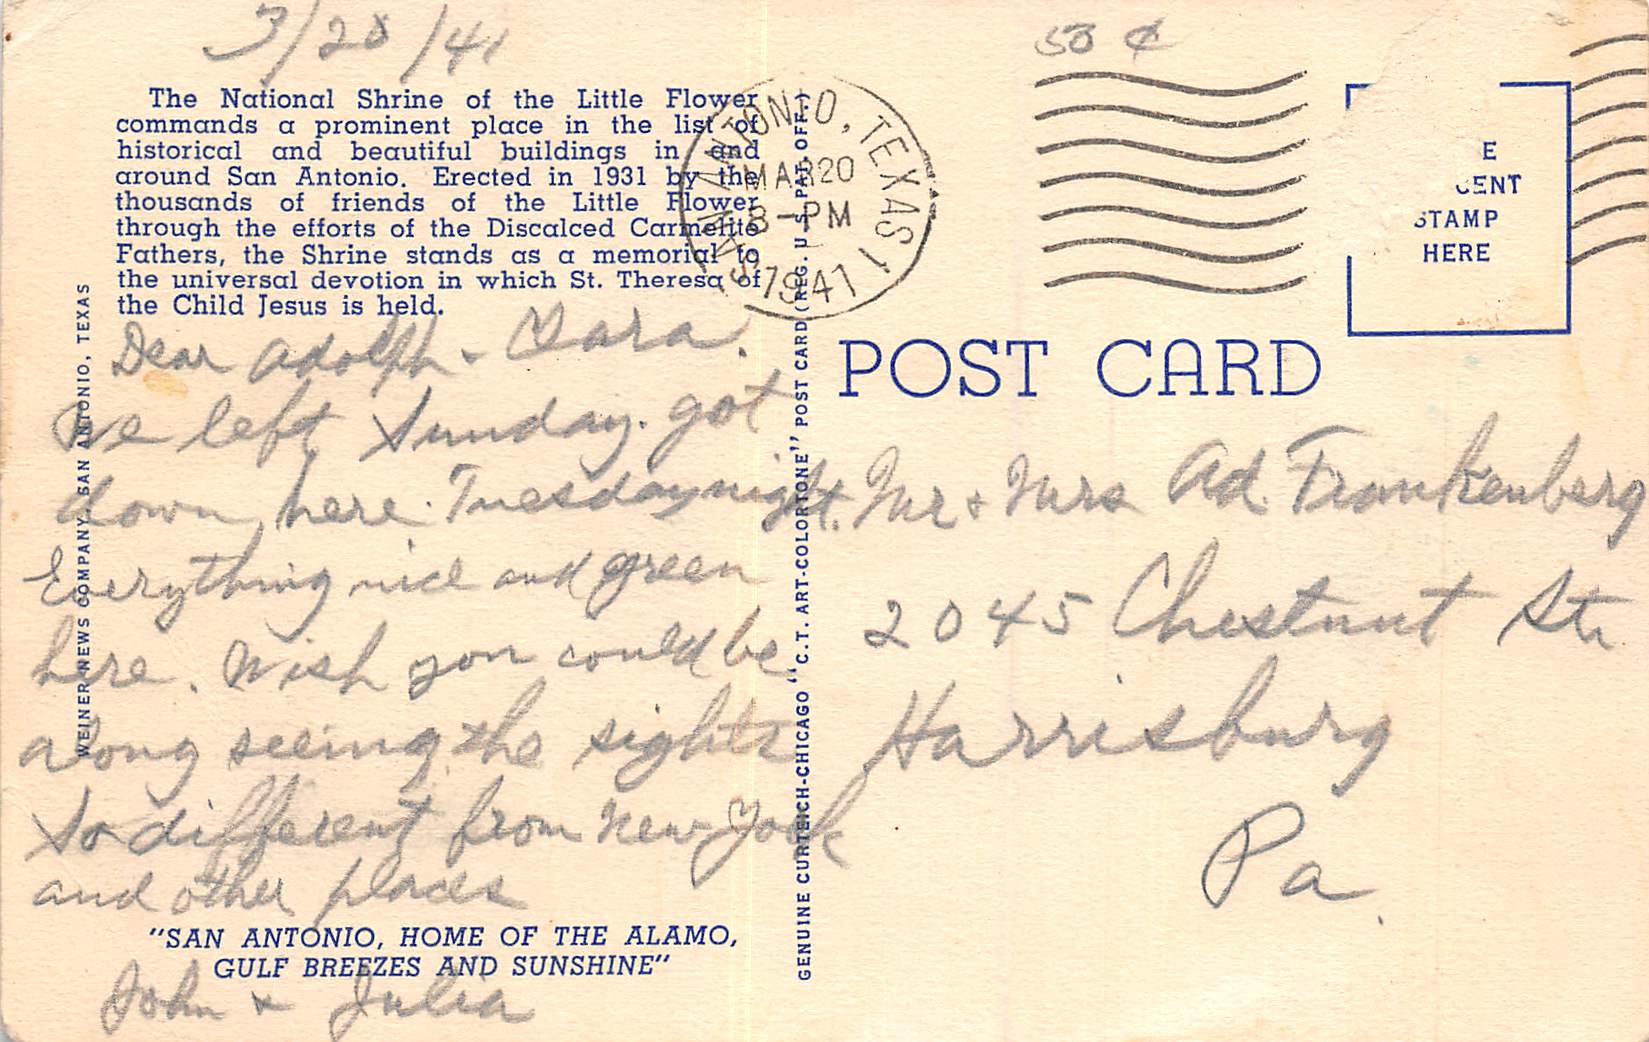 3/20/41
50 ¢
The National Shrine of the Little Flower
commands a prominent place in the list of
historical and beautiful buildings in and
around San Antonio. Erected in 1931 by the
thousands of friends of the Little Flower
through the efforts of the Discalced Carmelite
Fathers, the Shrine stands as a memorial to
the universal devotion in which St. Theresa of
the Child Jesus is held.
Dear Adolph - Clara.
We left Sunday. got
down here. Tuesday night.
Everything nice and green
here. Wish you could be
along seeing the sights
So different from New York
and other places
"SAN ANTONIO, HOME OF THE ALAMO,
GULF BREEZES AND SUNSHINE"
John & Julia
WEINER NEWS COMPANY, SAN ANTONIO, TEXAS
GENUINE CURTEICH-CHICAGO "C.T. ART-COLORTONE" POST CARD (REG. U.S. PAT. OFF.)
SAN ANTONIO, TEXAS 1
MAR 20
8-PM
1941
E
CENT
STAMP
HERE
POST CARD
Mr & Mrs Ad. Frankenberg
2045 Chestnut Str
Harrisburg
Pa.